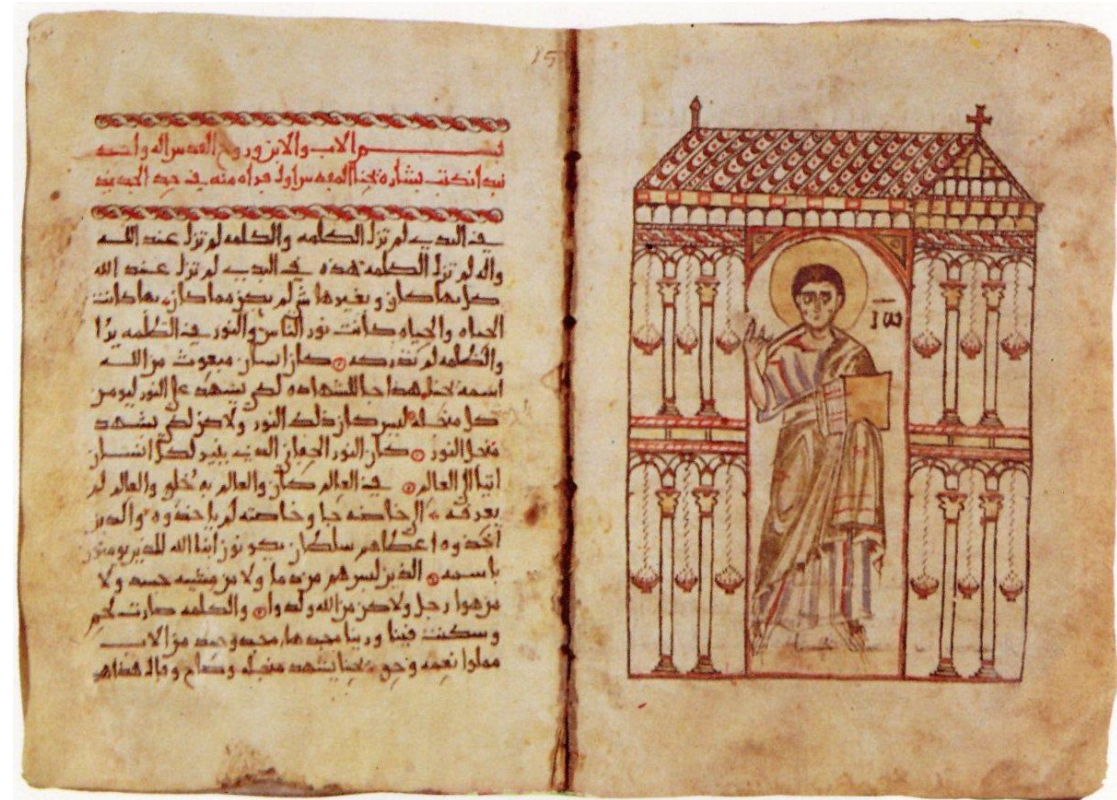 بسم الاب والابن وروح القدس اله واحد
نبدا نكتب بشاره يحنا المقدس اول قراه منه في حد الجديد
في البدي لم تزل الكلمه والكلمه لم تزل عند الله
واله لم تزل الكلمه هذه في البدي لم تزل عند الله
كل بها كان وبغيرها شي لم يكن مما كان بها كانت
الحياه والحياه كانت نور الناس والنور في الظلمه يرا
والظلمه لم تدركه كان انسان مبعوث من الله
اسمه يحنا هذا جا للشهاده لكي يشهد على النور ليومن
كل من قبله ليس كان ذلك النور ولاكن لكي يشهد
من قبل النور كان النور الذي ينير لكل انسان
اتيا الى العالم في العالم كان والعالم به خلق والعالم لم
يعرفه الى خاصته جا وخاصته لم ياخذوه والذين
اخذوه اعطاهم سلطان يكونون ابنا الله للذين يومنون
باسمه الذين ليس هم من دم ولا من مشيه جسد ولا
من هوا رجل ولاكن من الله ولدوا والكلمه صارت لحم
وسكنت فينا وراينا مجدها مجد وحيد من الاب
مملوا نعمه وحق يحنا يشهد من قبله وصاح وقال هذا هو
ΙΩ